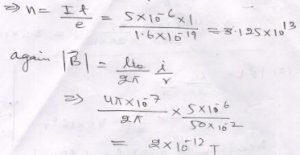 ⇒ n = It/e = 5×10⁻⁶×1 / 1.6×10⁻¹⁹ = 3.125×10¹³
again |B⃗| = μ₀/2π i/r
⇒ 4π×10⁻⁷/2π × 5×10⁻⁶/50×10⁻²
= 2×10⁻¹² T